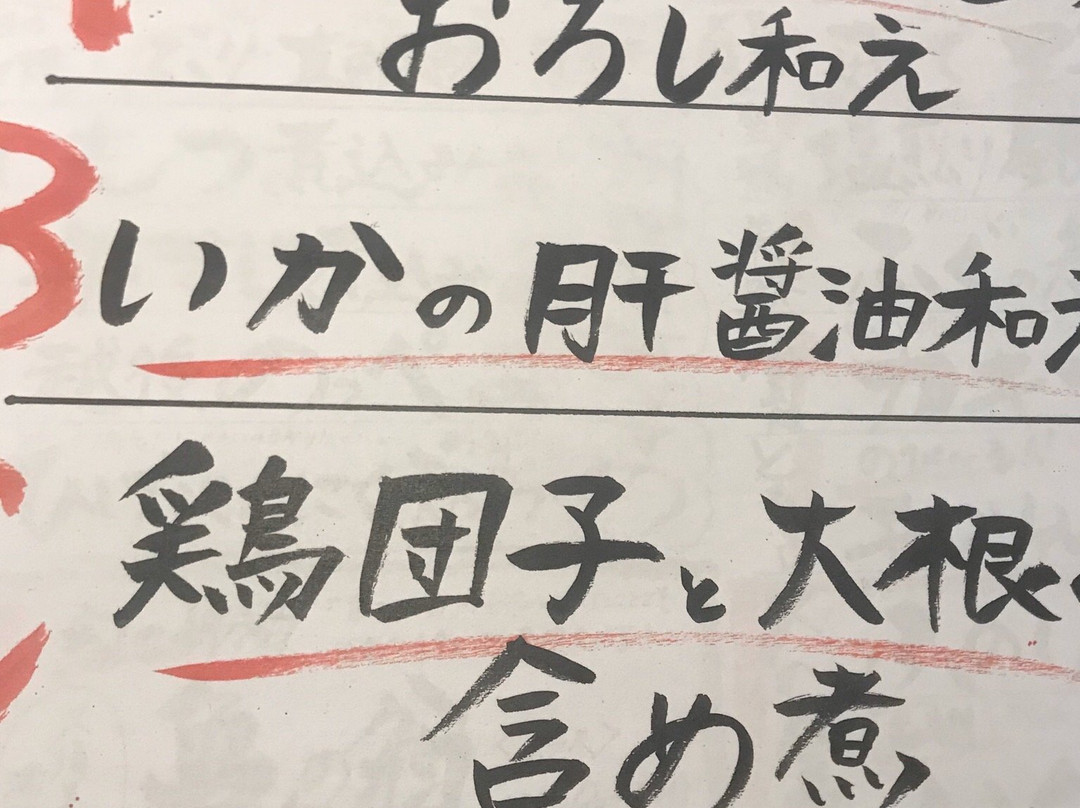 おろし和え
B いかの肝醤油和え
鶏団子と大根の
含め煮